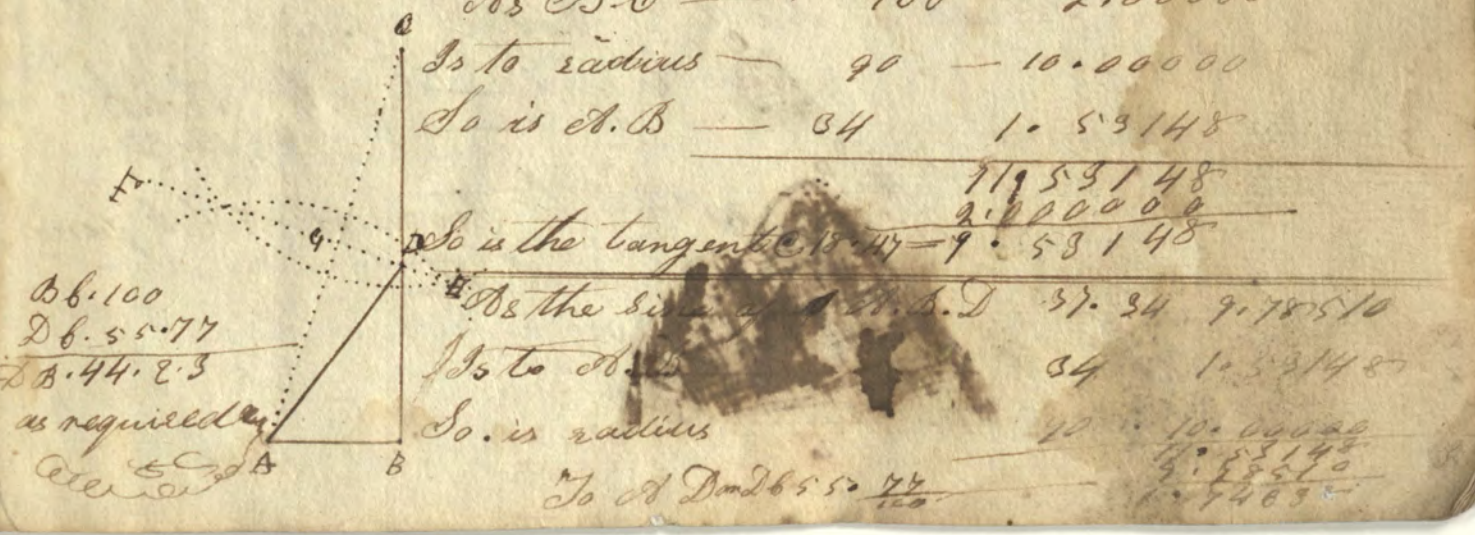 As B.C — 100 2.00000
Is to radius — 90 — 10.00000
So is A.B — 34 1.53148
11.53148
2.000000
So is the tangent C 18.47 = 9.53148
As the sine A.B.D 37.34 9.78510
Is to A.B 34 1.53148
So is radius 90 10.00000
11.53148
9.78510
To A D or Db 55.77/100 1.7463
C
F
G
D
E
A
B
Bb.100
Db.55.77
DB.44.23
as required